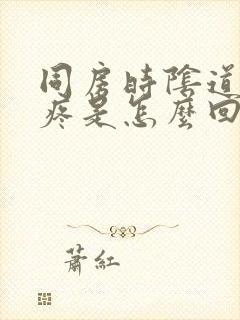 同房時陰道
疼是怎麼回
蕭紅